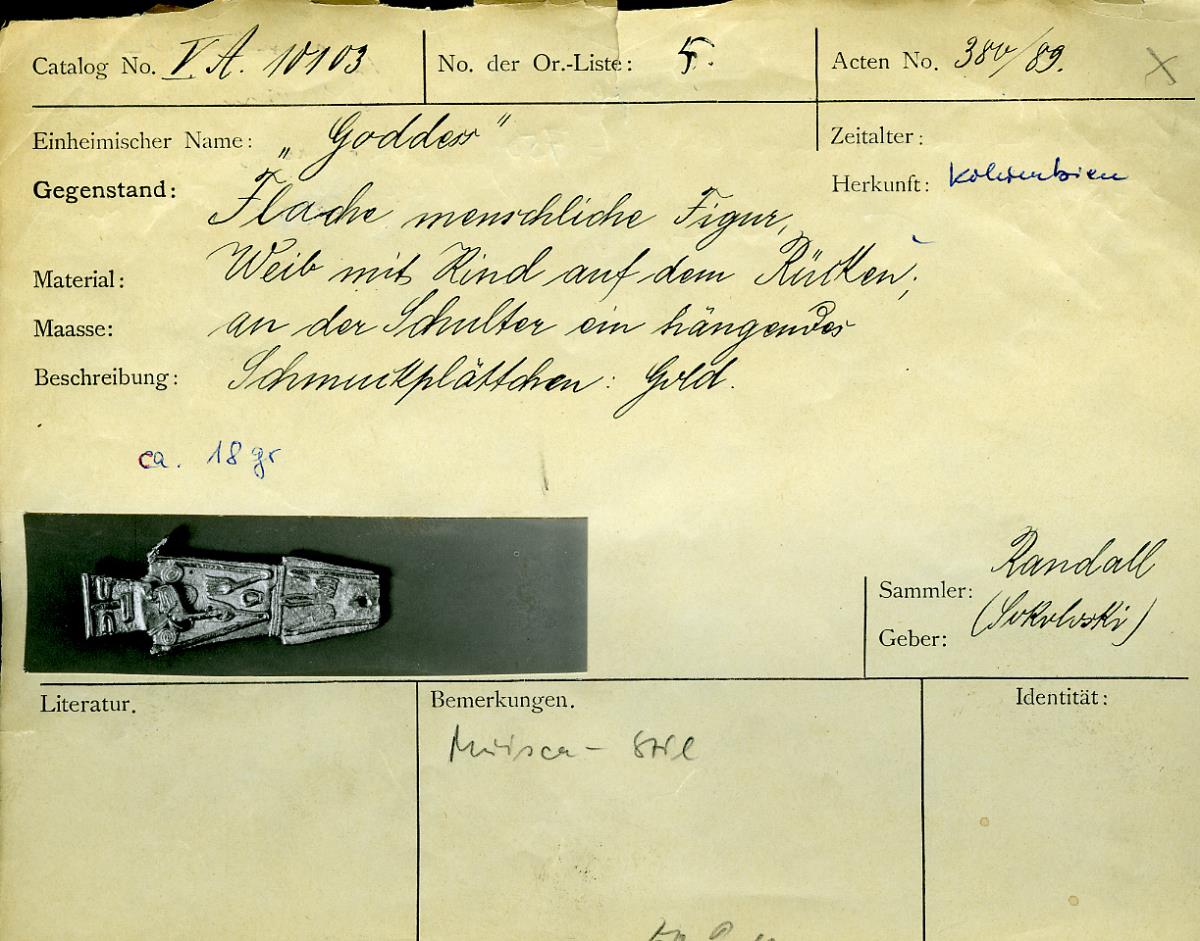 Catalog No. V A. 10103 No. der Or.-Liste: 5. Acten No. 380/89.
Einheimischer Name: „Goddess" Zeitalter:
Gegenstand: Flache menschliche Figur, Herkunft: Kolumbien
Material: Weib mit Kind auf dem Rücken;
Maasse: an der Schulter ein hängendes
Beschreibung: Schmuckplättchen: Gold.
ca. 18 gr
Sammler: Randall
Geber: (Sokolowski)
Literatur. Bemerkungen. Identität:
Muisca-Stil